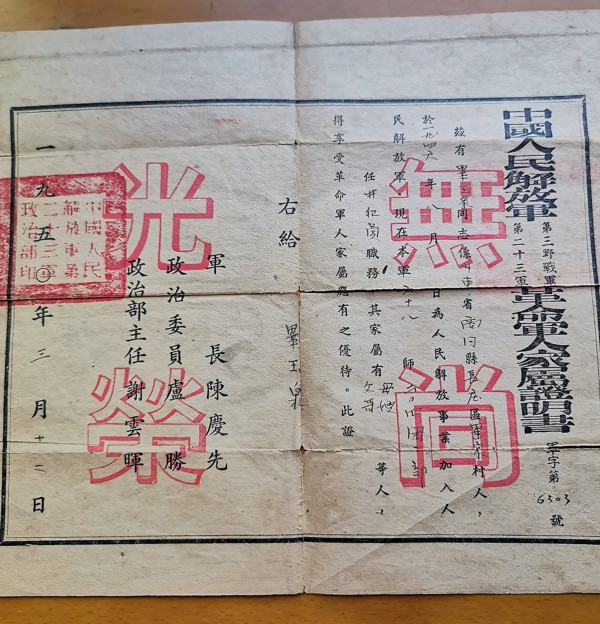 中國人民解放軍
第三野戰軍
第二十三軍
革命軍人家屬證明書
軍字第6303號
茲有畢玉泉同志係山東省商河縣長庄區畢家村人，
於一九四六年八月 日為人民解放事業加入人
民解放軍，現在本軍六十八師
任職務，其家屬有等人，
得享受革命軍人家屬應有之優待。此證
右給畢玉泉
軍長陳慶先
政治委員盧勝
政治部主任謝雲暉
一九五〇年三月十二日
無尚光榮
中國人民
解放軍第
二十三軍
政治部印